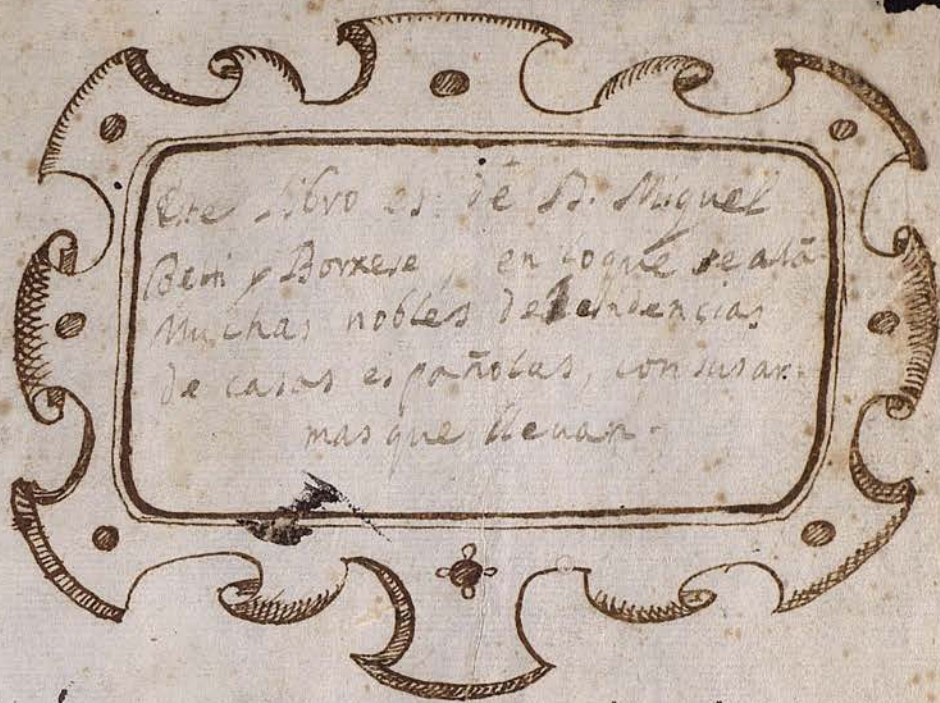 Este Libro es de D. Miguel
Beni y Borxese, en loque se alã
Muchas nobles desendencias
de casas españolas, con sus ar-
mas que lleuan.